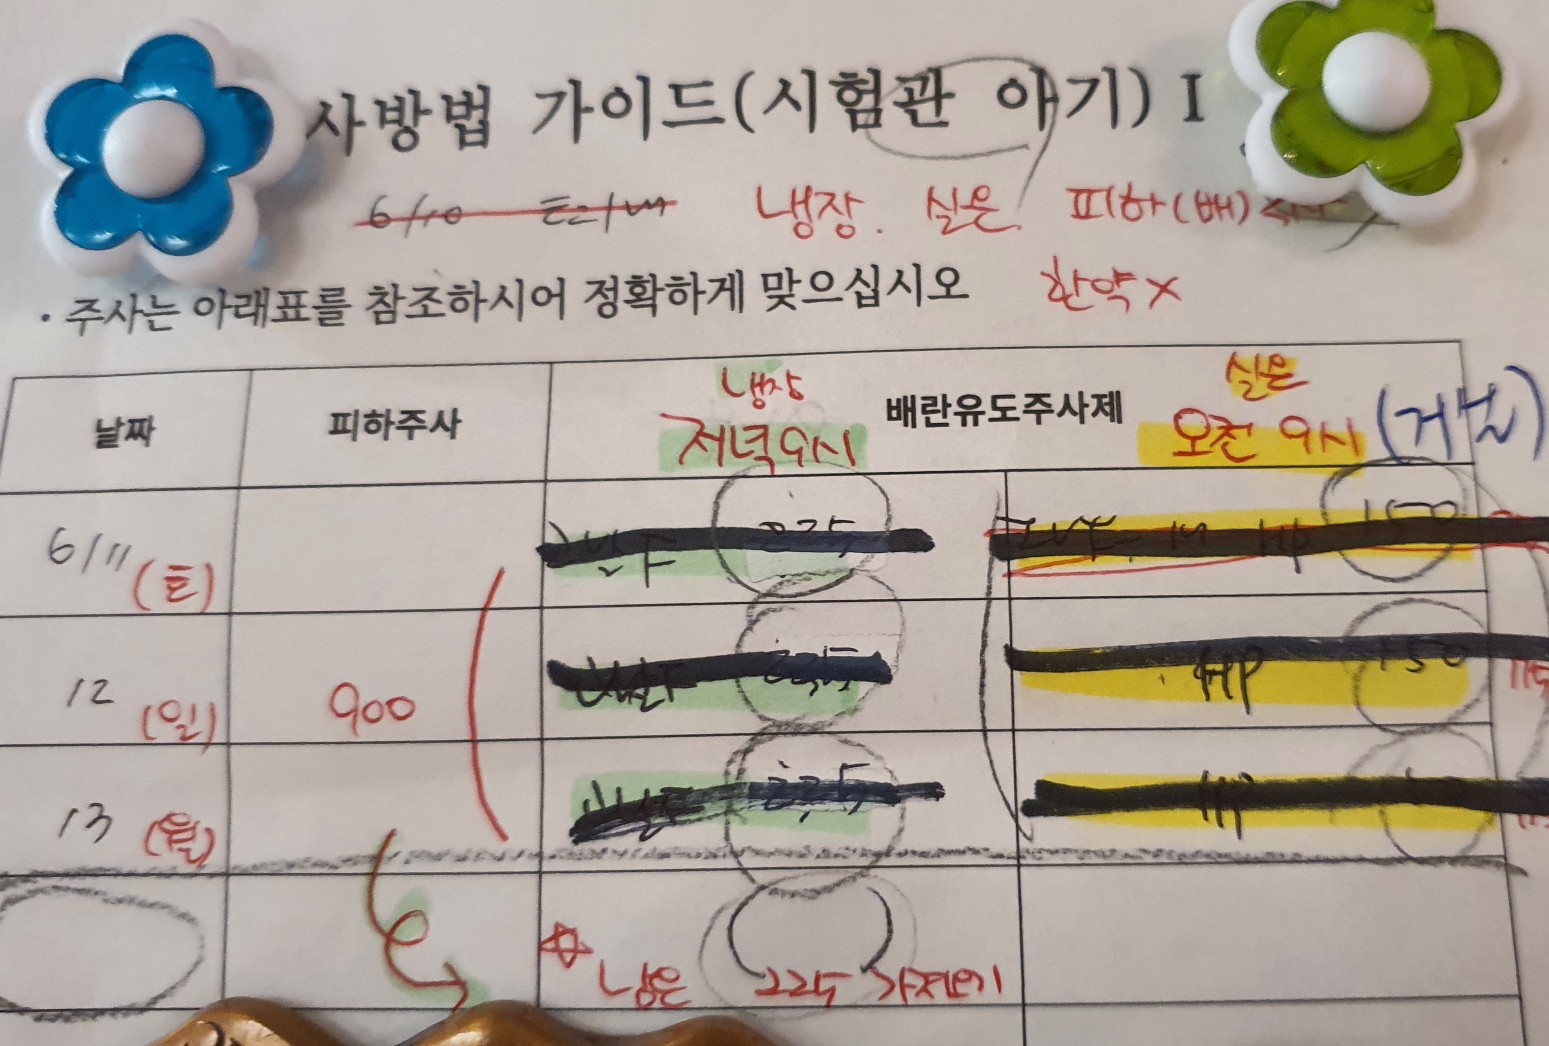 사방법 가이드(시험관 아기) I
6/10
냉장. 실온. 피하(배)
• 주사는 아래표를 참조하시어 정확하게 맞으십시오 한약X
냉장 실온
날짜 피하주사 저녁9시 배란유도주사제 오전 9시
6/11 (토) 225 150
12 (일) 900 225 HP 150
13 (월) 225 HP
남은 225 가져오기